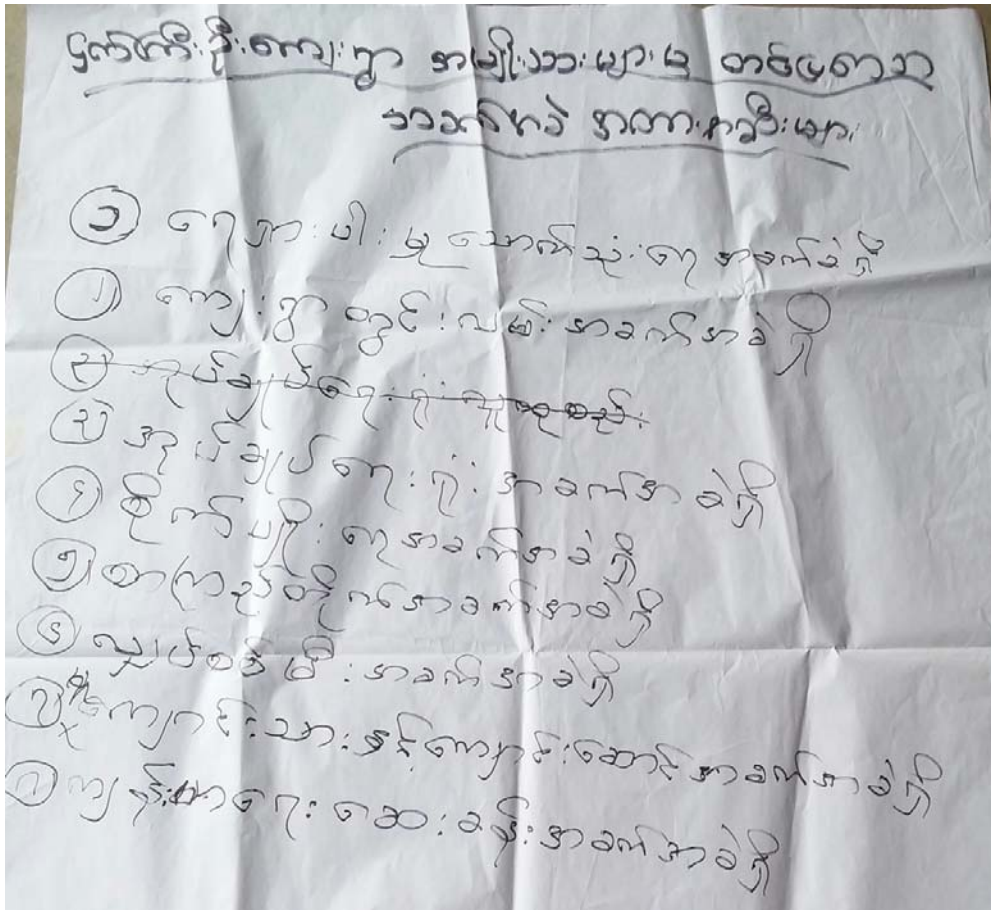 ငှက်ကြီးဦးကျေးရွာ အမျိုးသားများမှ တင်ပြသော
အခက်အခဲ အကြောင်းအရာများ
၁ ရေရှားပါးမှု သောက်သုံးရေ အခက်ခဲရှိ
၂ ကျေးရွာတွင်းလမ်း အခက်အခဲရှိ
၃ အုပ်ချုပ်ရေးရုံး
၃ အုပ်ချုပ်ရေးရုံး အခက်အခဲရှိ
၄ စိုက်ပျိုးရေအခက်အခဲရှိ
၅ စာကြည့်တိုက်အခက်အခဲရှိ
၆ လျှပ်စစ်မီးအခက်အခဲရှိ
၇ ကျောင်းသားနှင့်ကျောင်းဆောင်အခက်အခဲရှိ
၈ ကျန်းမာရေးဆေးခန်းအခက်အခဲရှိ